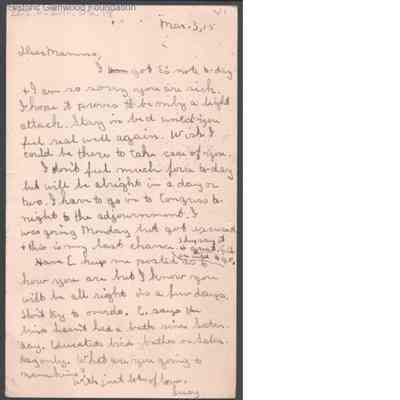 Historic Glenwood Foundation
Mar. 3, 15
Dear Mamma,
I got E's note to-day
+ I am so sorry you are sick.
I hope it proves to be only a light
attack. Stay in bed until you
feel real well again. Wish I
could be there to take care of you.
I don't feel much force to-day
but will be alright in a day or
two. I have to go in to Congress to-
night to the adjournment. I
was going Monday but got excused
+ this is my last chance.
Have E. keep me posted as to
how you are but I know you
will be all right in a few days.
Don't try to overdo. E. says the
bird hasn't had a bath since Satur-
day. Educated bird - bathes on Satur-
day only. What are you going to
name him?
With just lots of love,
Lucy